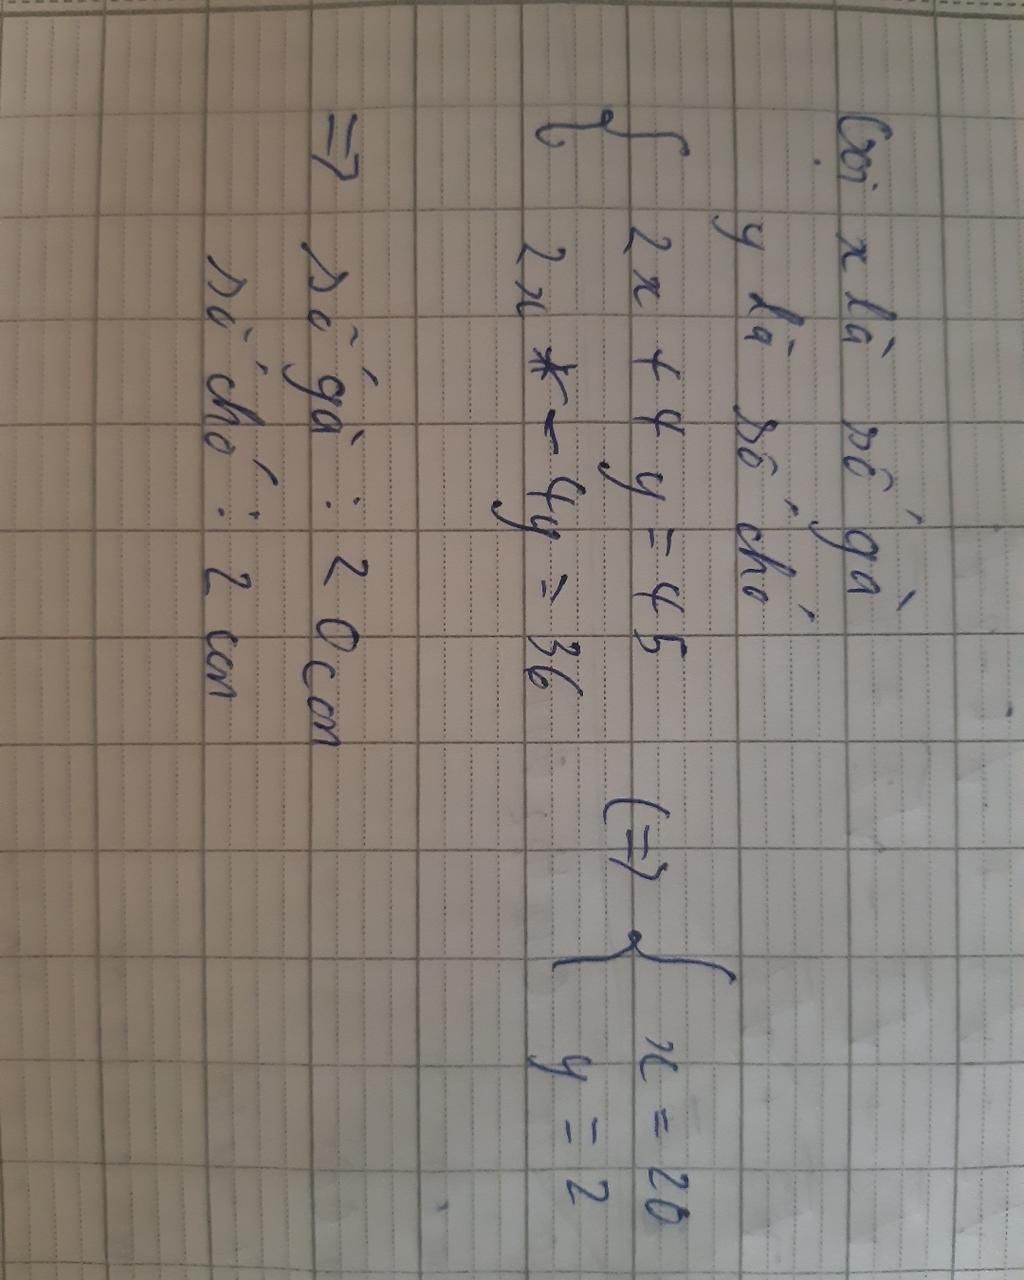 Gọi x là số gà
y là số chó
{ 2x + 4y = 45 (=> { x = 20
2x - 4y = 36 y = 2
=> số gà : 20 con
số chó : 2 con